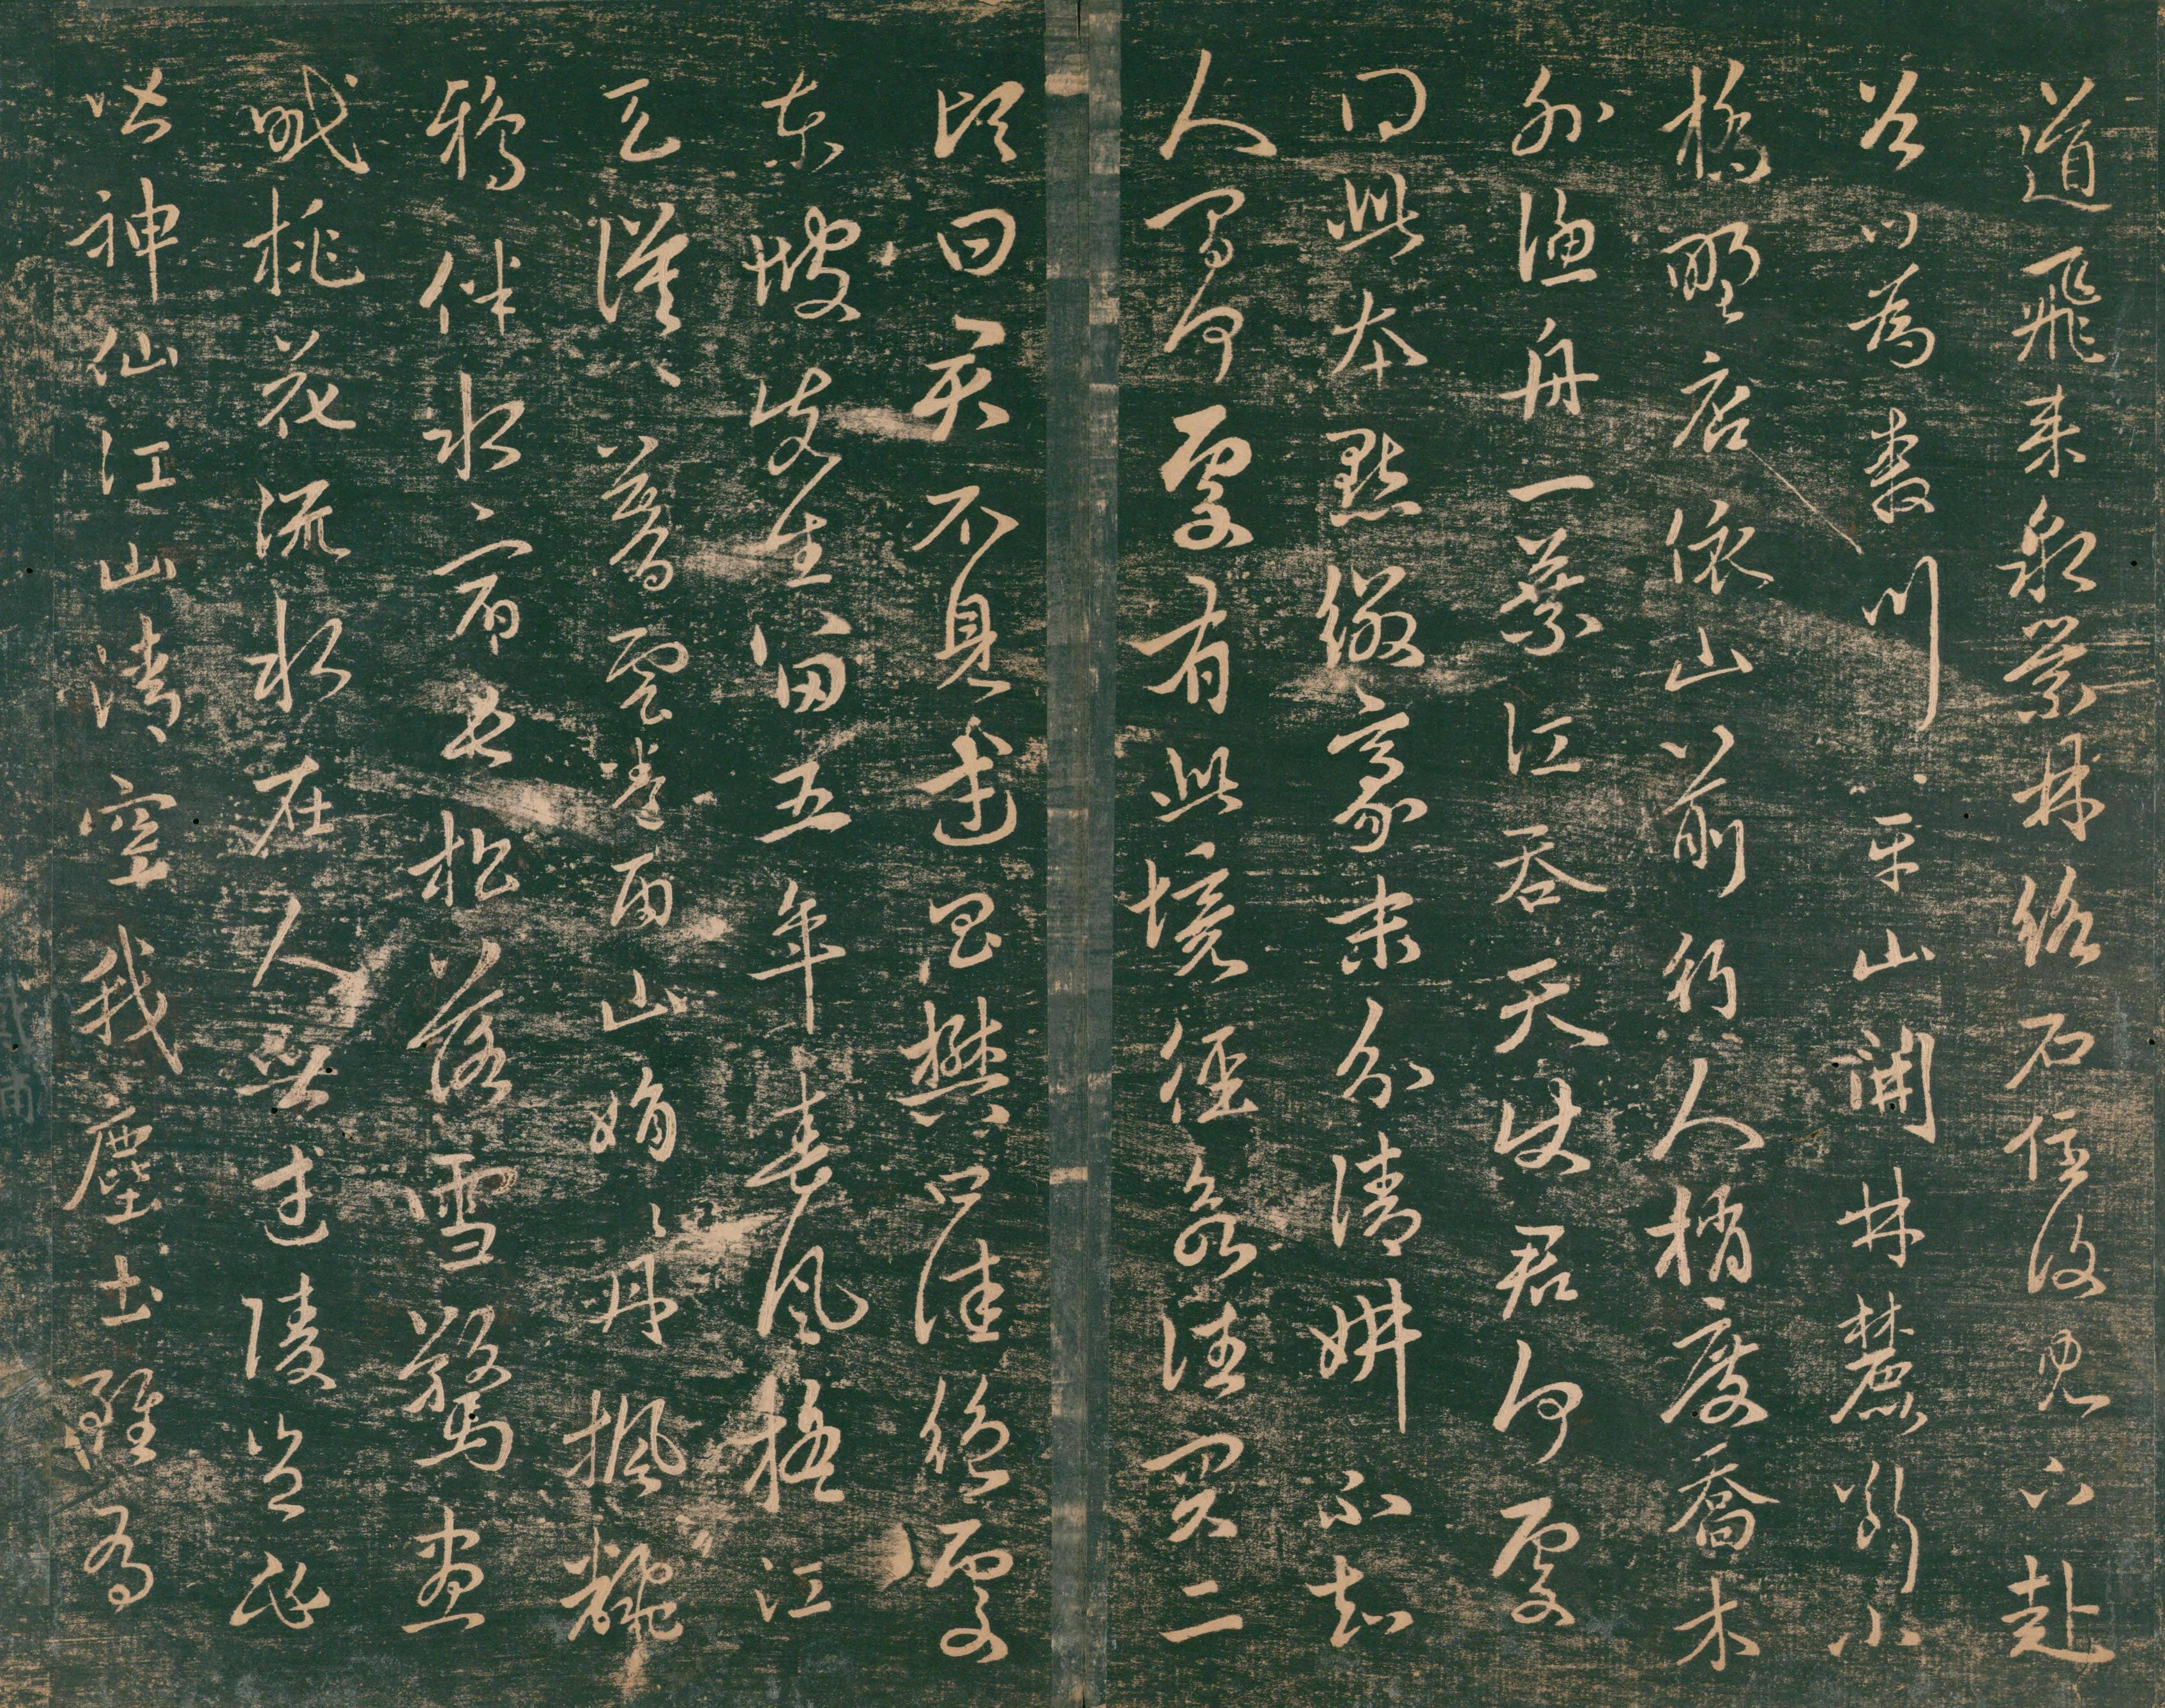 道飛来泉縈林絡石隱復見下赴
谷口為奔川〻平山開林麓斷小
橋野店依山前行人稍度喬木
外漁舟一葉江吞天使君何處
得此本點綴豪末分清妍不知
人間何處有此境徑欲往買二
頃田君不見武昌樊口佳絕處
東坡先生留五年春風搖江
天漠〻暮雲卷雨山娟〻丹楓翻
鴉伴水宿長松落雪驚晝
眠桃花流水在人世武陵豈必
皆神仙江山清空我塵土雖有